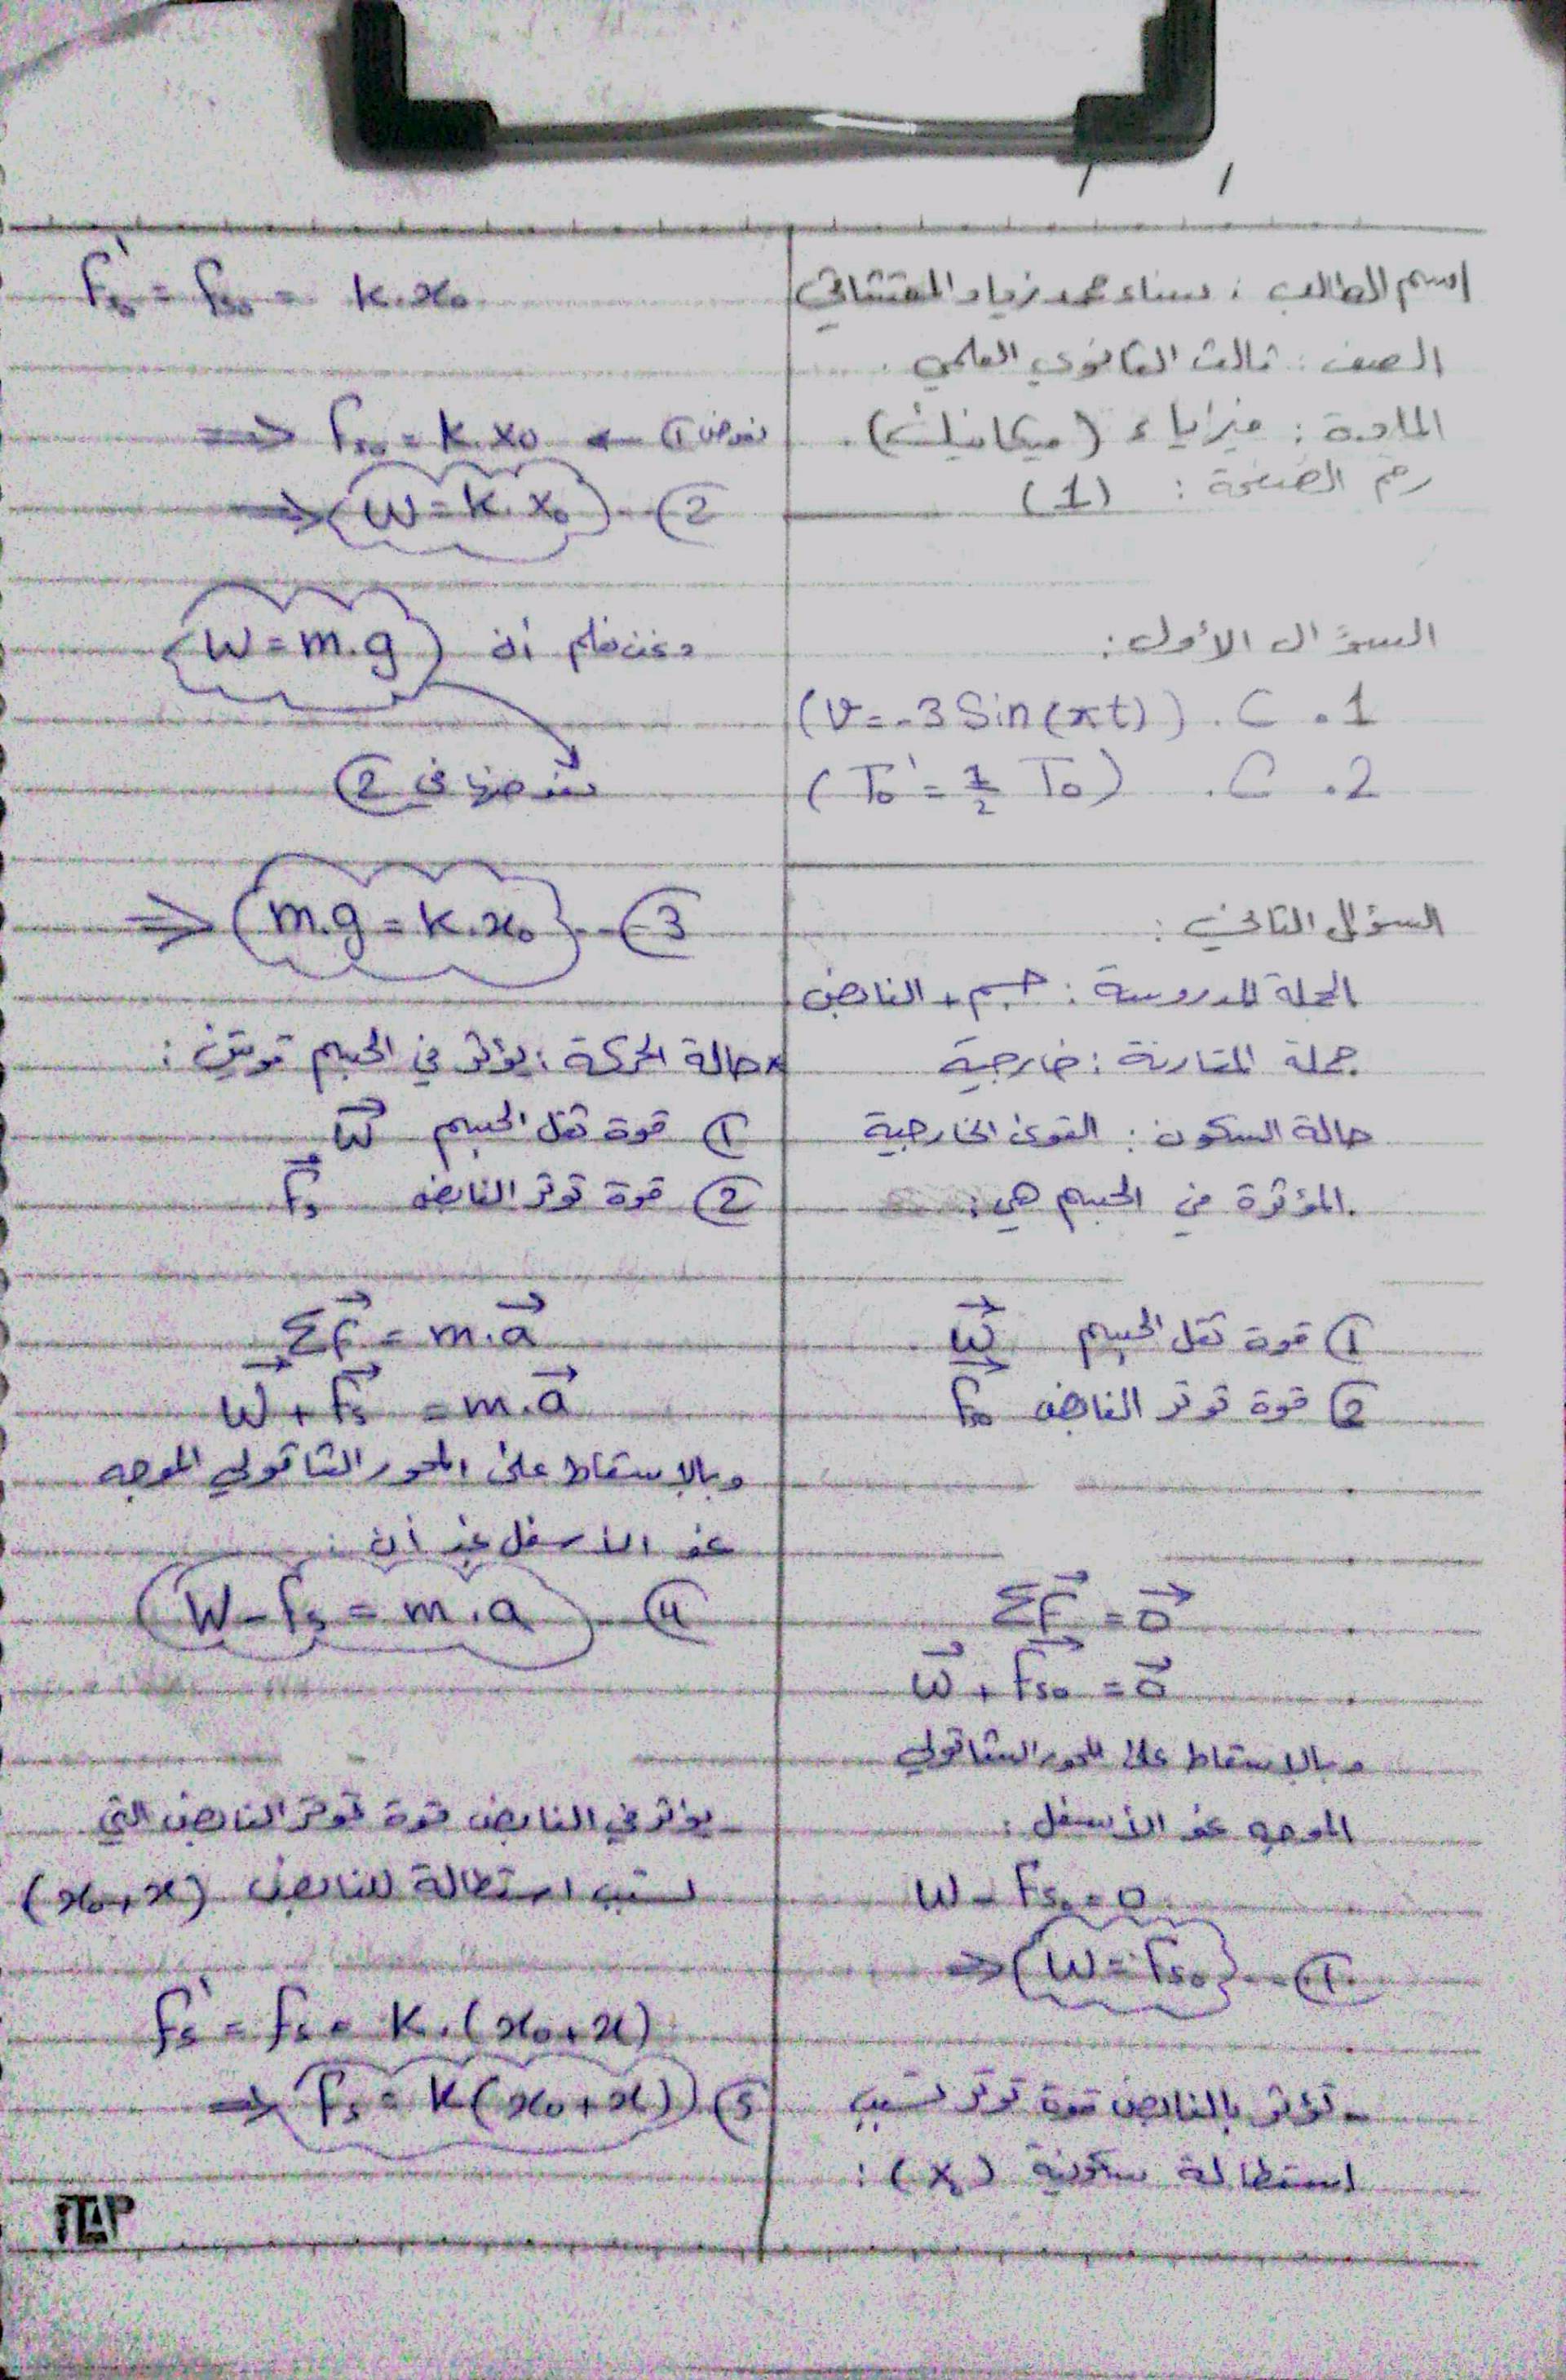 اسم الطالب : سناء محمد زياد
الصف : ثالث الثانوي العلمي .
المادة : فيزياء (ميكانيك) .
رقم الصفحة : (1)
السؤال الأول :
1. C . (v = -3 Sin(πt))
2. C . (T₀' = 1/2 T₀)
السؤال الثاني :
الجملة المدروسة : جسم + النابض
جملة المقارنة : خارجية
حالة السكون : القوى الخارجية
المؤثرة في الجسم هي :
① قوة ثقل الجسم W⃗
② قوة توتر النابض F⃗s₀
ΣF⃗ = 0⃗
W⃗ + F⃗s₀ = 0⃗
وبالإسقاط على المحور الشاقولي
الموجه نحو الأسفل :
W - Fs₀ = 0
⇒ (W = Fs₀) --- ①
- تؤثر بالنابض قوة توتر تسبب
استطالة سكونية (x₀) :
F's₀ = Fs₀ = k.x₀
نعوض ① ← Fs₀ = k.x₀ ⇒
⇒ (W = k.x₀) -- ②
ونحن نعلم أن (W = m.g)
نعوضها في ②
⇒ (m.g = k.x₀) --- ③
* حالة الحركة : يؤثر في الجسم قوتين :
① قوة ثقل الجسم W⃗
② قوة توتر النابض F⃗s
ΣF⃗ = m.a⃗
W⃗ + F⃗s = m.a⃗
وبالإسقاط على المحور الشاقولي الموجه
نحو الأسفل نجد أن :
(W - Fs = m.a) -- ④
- يؤثر في النابض قوة توتر النابض التي
تسبب استطالة للنابض (x₀+x)
F's = Fs = k.(x₀+x)
⇒ (Fs = k(x₀+x)) ⑤